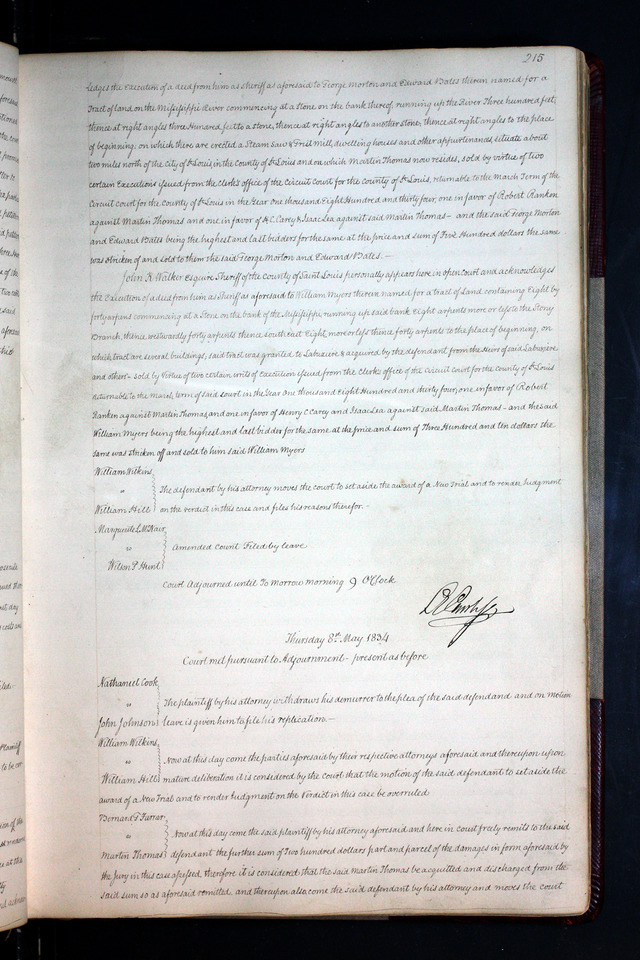 215
ledges the Execution of a deed from him as sheriff as aforesaid to George Morton and Edward Bates therein named for a
Tract of land on the Mississippi River commencing at a stone on the bank thereof, running up the River Three hundred feet,
thence at right angles three Hundred feet to a stone, thence at right angles to another stone, thence at right angles to the place
of beginning, on which there are erected a Steam Saw & Grist Mill, dwelling houses and other appurtenances, situate about
two miles north of the city of St Louis, in the county of St Louis and on which Martin Thomas now resides, sold by virtue of two
certain Executions issued from the Clerk's office of the Circuit court for the county of St Louis, returnable to the March Term of the
Circuit court for the county of St Louis in the Year one thousand Eight Hundred and thirty four, one in favor of Robert Ranken
against Martin Thomas and one in favor of H. C. Carey & Isaac Lea against said Martin Thomas — and the said George Morton
and Edward Bates being the highest and last bidders for the same at the price and sum of Five Hundred dollars the same
was stricken of and sold to them the said George Morton and Edward Bates. —
John K Walker Esquire Sheriff of the county of Saint Louis personally appears here in open court and acknowledges
the Execution of a deed from him as Sheriff as aforesaid to William Myers therein named for a tract of Land containing Eight by
forty arpents commencing at a Stone on the bank of the Mississippi, running up said bank Eight arpents more or less to the Stony
Branch, thence westwardly forty arpents thence south east Eight, more or less thence forty arpents to the place of beginning, on
which tract are several buildings, said tract was granted to Labuxiere & acquired by the defendant from the Heirs of said Labuxiere
and others – sold by Virtue of two certain writs of Execution issued from the Clerks office of the Circuit court for the County of St Louis
returnable to the March term of said court in the Year one thousand Eight Hundred and thirty four, one in favor of Robert
Ranken against Martin Thomas, and one in favor of Henry C Carey and Isaac Lea against said Martin Thomas – and the said
William Myers being the highest and last bidder for the same at the price and sum of Three Hundred and ten dollars the
same was stricken off and sold to him said William Myers
William Wilkins
vs The defendant by his attorney moves the court to set aside the award of a New Trial and to render Judgment
William Hill on the verdict in this case and files his reasons therefor. –
Marguerite L McNair
vs Amended Count Filed by leave
Wilson P Hunt
Court Adjourned until To morrow morning 9 O'Clock
Thursday 8th May 1834
Court met pursuant to Adjournment – present as before
Nathaniel Cook
vs The plaintiff by his attorney withdraws his demurrer to the plea of the said defendant and on motion
John Johnson leave is given him to file his replication. –
William Wilkins
vs Now at this day come the parties aforesaid by their respective attorneys aforesaid and thereupon upon
William Hill mature deliberation it is considered by the Court that the motion of the said defendant to set aside the
award of a New Trial and to render Judgment on the Verdict in this case be overruled
Bernard G Farrar
vs Now at this day come the said plaintiff by his attorney aforesaid and here in court freely remits to the said
Martin Thomas defendant the further sum of Two hundred dollars part and parcel of the damages in form aforesaid by
the Jury in this case assessed, therefore it is considered that the said Martin Thomas be acquitted and discharged from the
said sum so as aforesaid remitted, and thereupon also come the said defendant by his attorney and moves the court